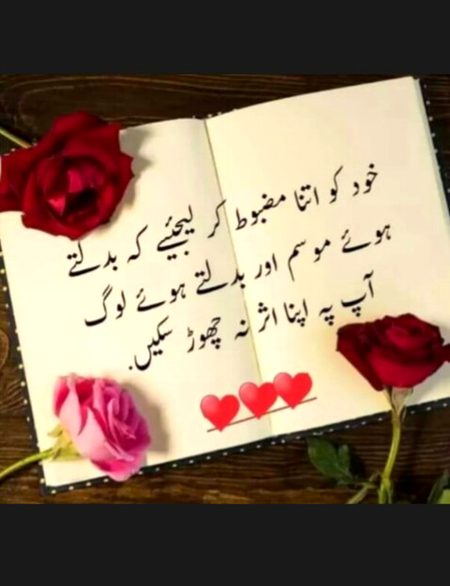 خود کو اتنا مضبوط کر لیجیئے کہ بدلتے
ہوئے موسم اور بدلتے ہوئے لوگ
آپ پہ اپنا اثر نہ چھوڑ سکیں.